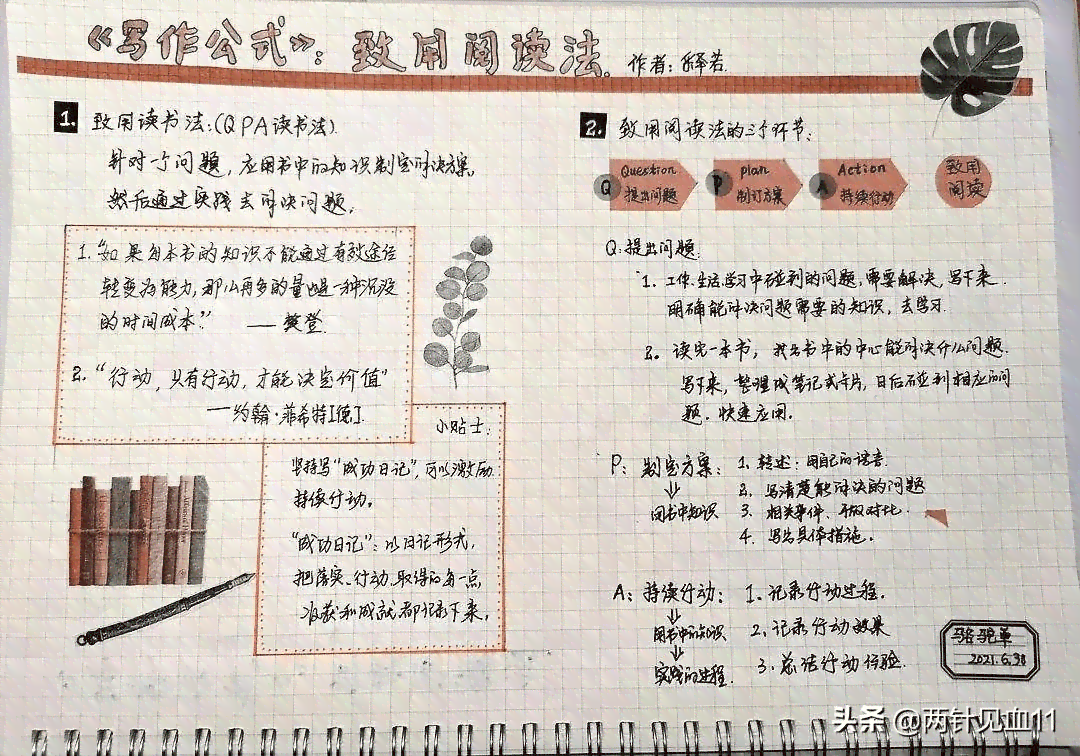 《写作公式》：致用阅读法.
作者：怿若.
1. 致用读书法：(QPA读书法).
针对一个问题，应用书中的知识制定解决方案，
然后通过实践去解决问题。
1. "如果每本书的知识不能通过有效途径
转变为能力，那么再多的量也是一种沉没
的时间成本。"
——樊登.
2. "行动，只有行动，才能决定价值"
——约翰·菲希特[德].
小贴士：
坚持写"成功日记"，可以激励
持续行动。
"成功日记"：以日记形式，
把落实、行动、取得的每一点
收获和成就都记录下来。
2. 致用阅读法的三个环节：
Q Question 提出问题
P plan 制订方案
A Action 持续行动
致用
阅读
Q：提出问题.
1. 工作.生活.学习中碰到的问题，需要解决，写下来.
明确能解决问题需要的知识，去学习.
2. 读完一本书，书中的中心能解决什么问题.
写下来，整理成笔记或卡片，日后碰到相应的问
题.快速应用.
P：制定方案：
用书中知识
1. 转述：用自己的语言.
2. 写清楚能解决的问题
3. 相关事件、对比.
4. 写出具体措施。
A：持续行动：
用书中的知识
实践的过程.
1. 记录行动过程.
2. 记录行动效果
3. 总结行动经验.
骆驼草
2021.6.
头条 @两针见血11